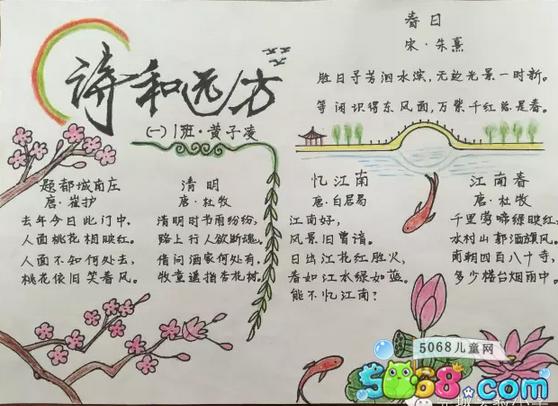 诗和远方
(一)1班·黄子凌
春日
宋·朱熹
胜日寻芳泗水滨,无边光景一时新。
等闲识得东风面,万紫千红总是春。
题都城南庄
唐·崔护
去年今日此门中,
人面桃花相映红。
人面不知何处去,
桃花依旧笑春风。
清明
唐·杜牧
清明时节雨纷纷,
路上行人欲断魂。
借问酒家何处有,
牧童遥指杏花村。
忆江南
唐·白居易
江南好,
风景旧曾谙。
日出江花红胜火,
春如江水绿如蓝。
能不忆江南?
江南春
唐·杜牧
千里莺啼绿映红,
水村山郭酒旗风。
南朝四百八十寺,
多少楼台烟雨中。
5068儿童网
5068.com